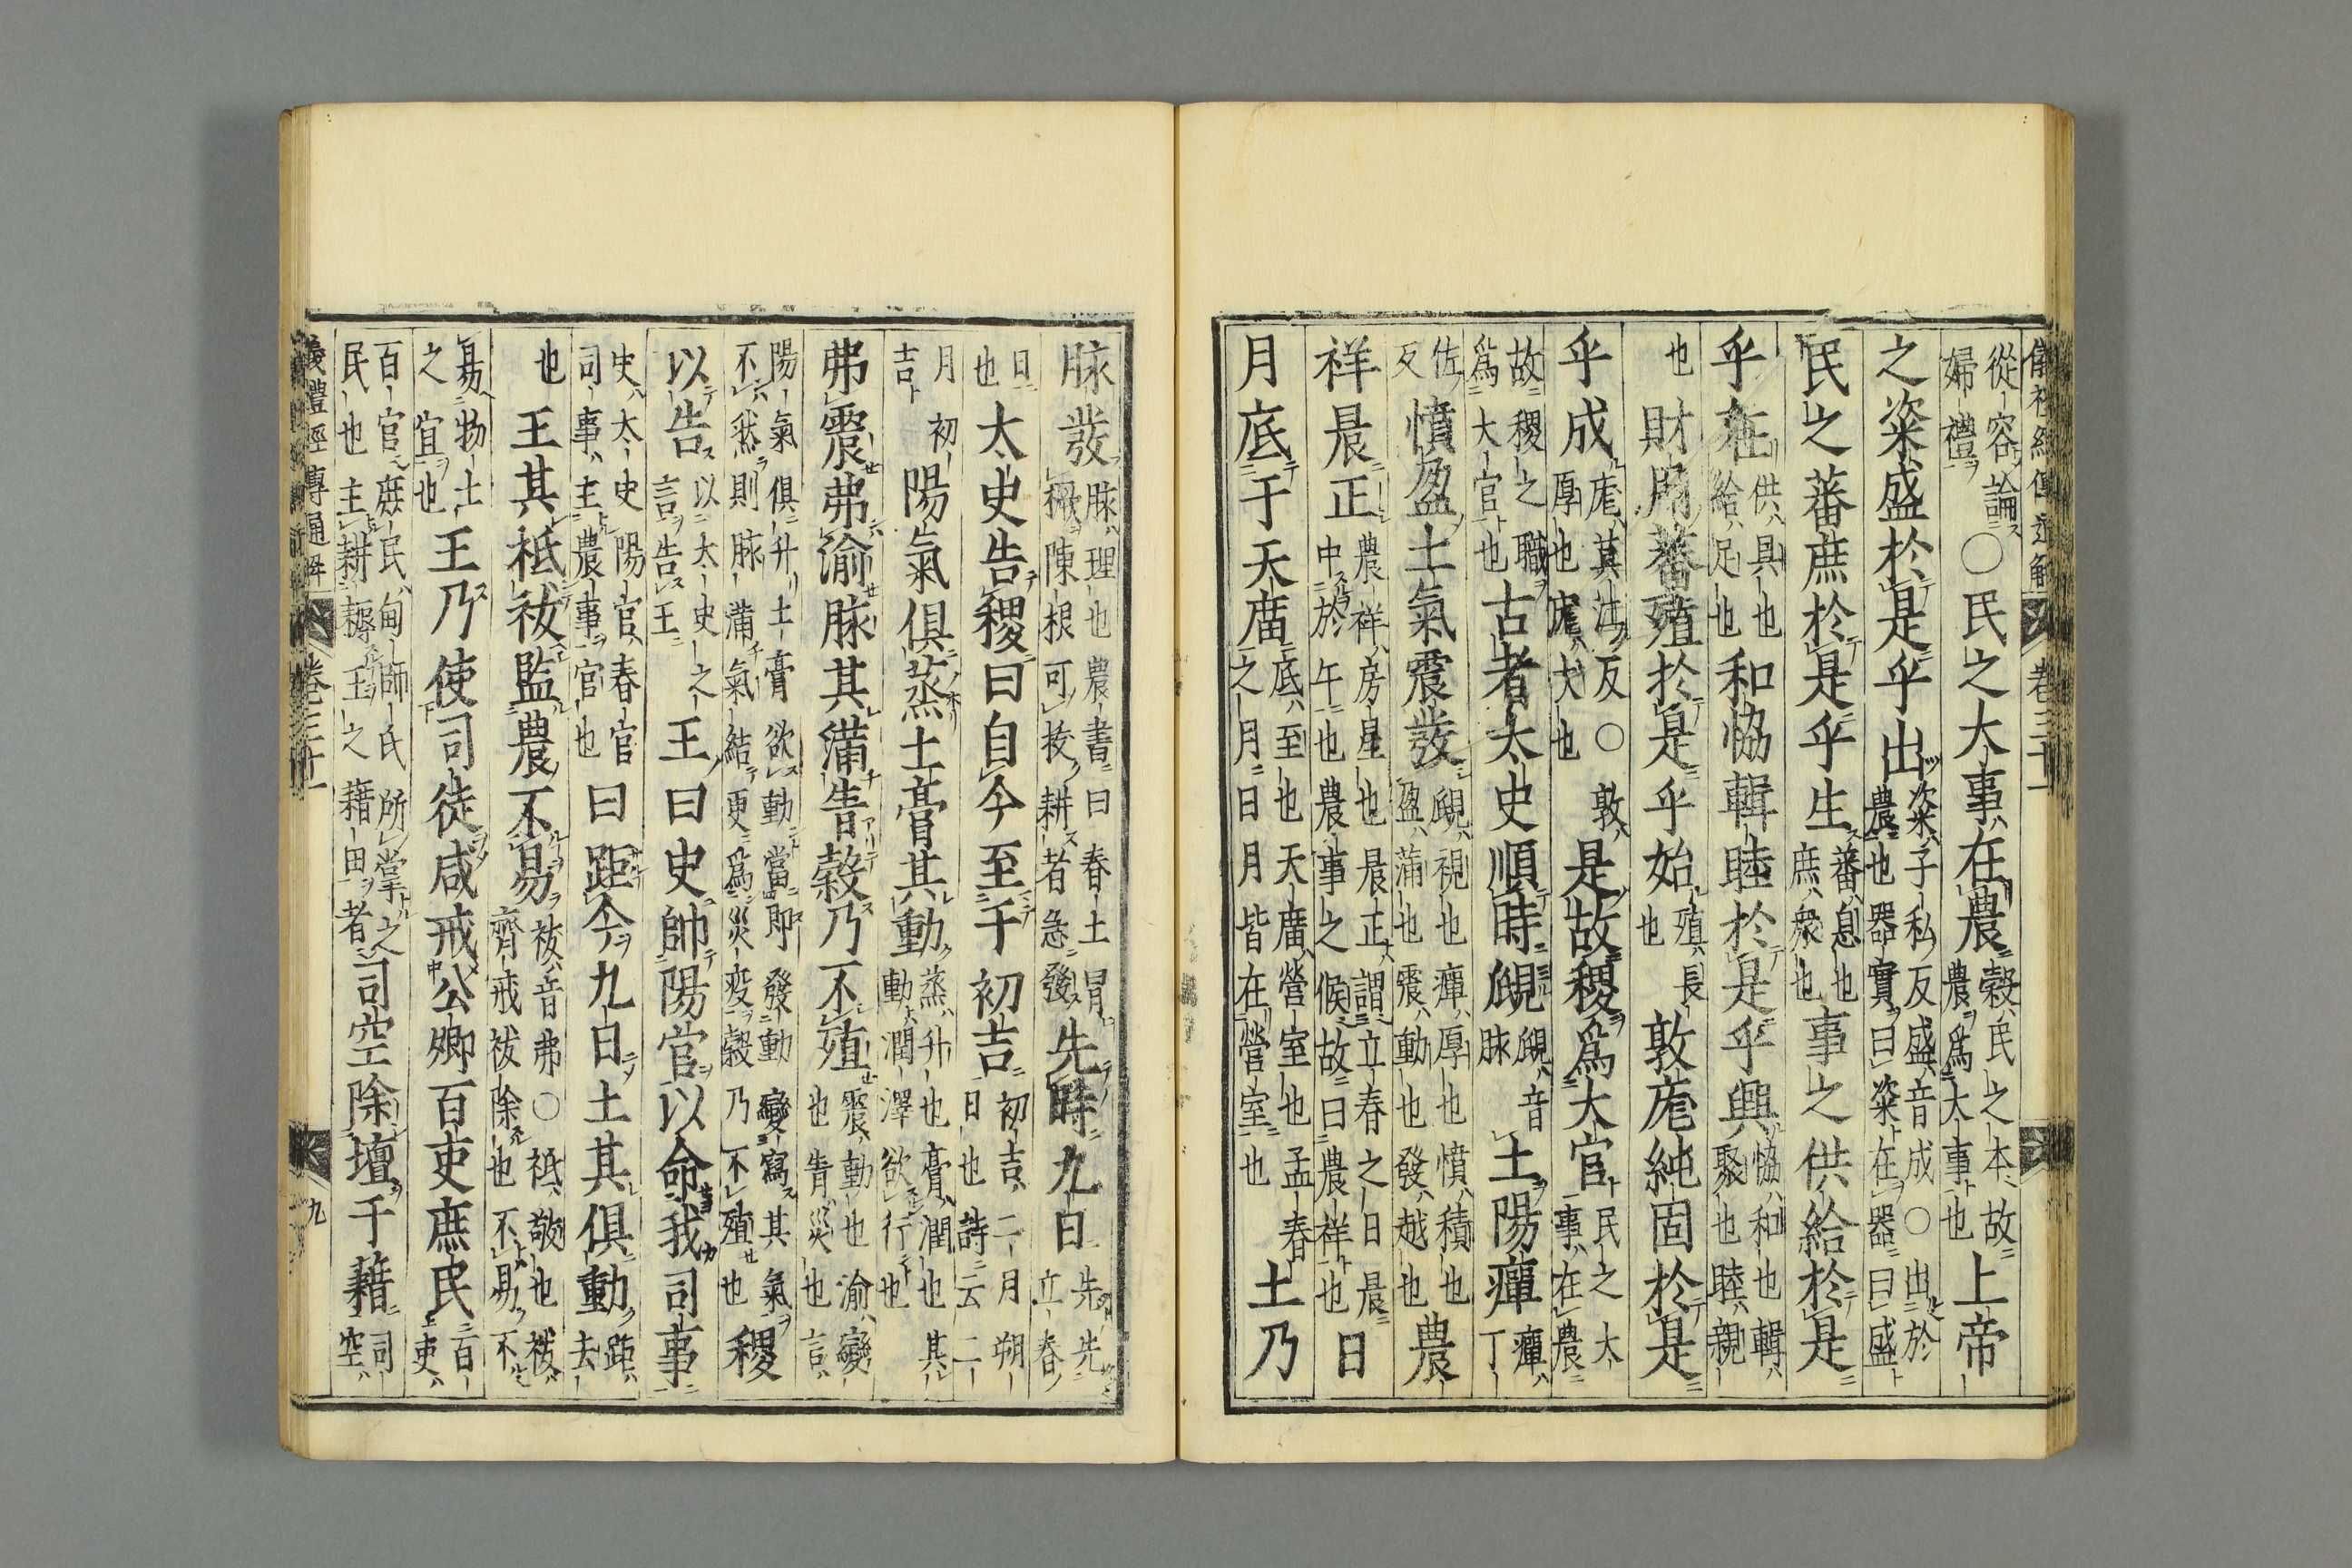 儀禮經傳通解 卷三十一
從容論婦禮○民之大事在農穀民之本故農爲大事也上帝
之粢盛於是乎出粢子私反盛音成○出於農也器實曰粢在器曰盛
民之蕃庶於是乎生蕃息也庶衆也事之供給於是
乎在供具也給足也和恊輯睦於是乎興恊和也輯聚也睦親
也財用蕃殖於是乎始殖長也敦庬純固於是
乎成庬莫江反○敦厚也庬大也是故稷爲大官民之大事在農
故稷之職爲大官也古者太史順時覛覛音脉土陽癉癉丁
佐反憤盈土氣震發覛視也癉厚也憤積也盈滿也震動也發越也農
祥晨正農祥房星也晨正謂立春之日晨中於午也農事之候故曰農祥也日
月底于天廣底至也天廣營室也孟春之月日月皆在營室也土乃
脉發脉理也農書曰春土冒橛陳根可拔耕者急發先時九日先先立春
日也太史告稷曰自今至于初吉初吉二月朔日也詩云二
月初吉陽氣俱蒸土膏其動蒸升也膏潤也其動潤澤欲行也
弗震弗渝脉其滿眚穀乃不殖震動也渝變也眚災也言
陽氣俱升土膏欲動當即發動變寫其氣不然則脉滿氣結更爲災疫穀乃不殖也稷
以告以太史之言告王王曰史帥陽官以命我司事
史太史陽官春官司事主農事官也曰距今九日土其俱動距去
也王其祗祓監農不易祓音弗○祗敬也祓齊戒祓除也不易不
易物土之宜也王乃使司徒咸戒公卿百吏庶民百吏
百官庶民甸師氏所掌之民也主耕耨王之藉田者司空除壇于藉司空
儀禮經傳通解 卷三十一 九